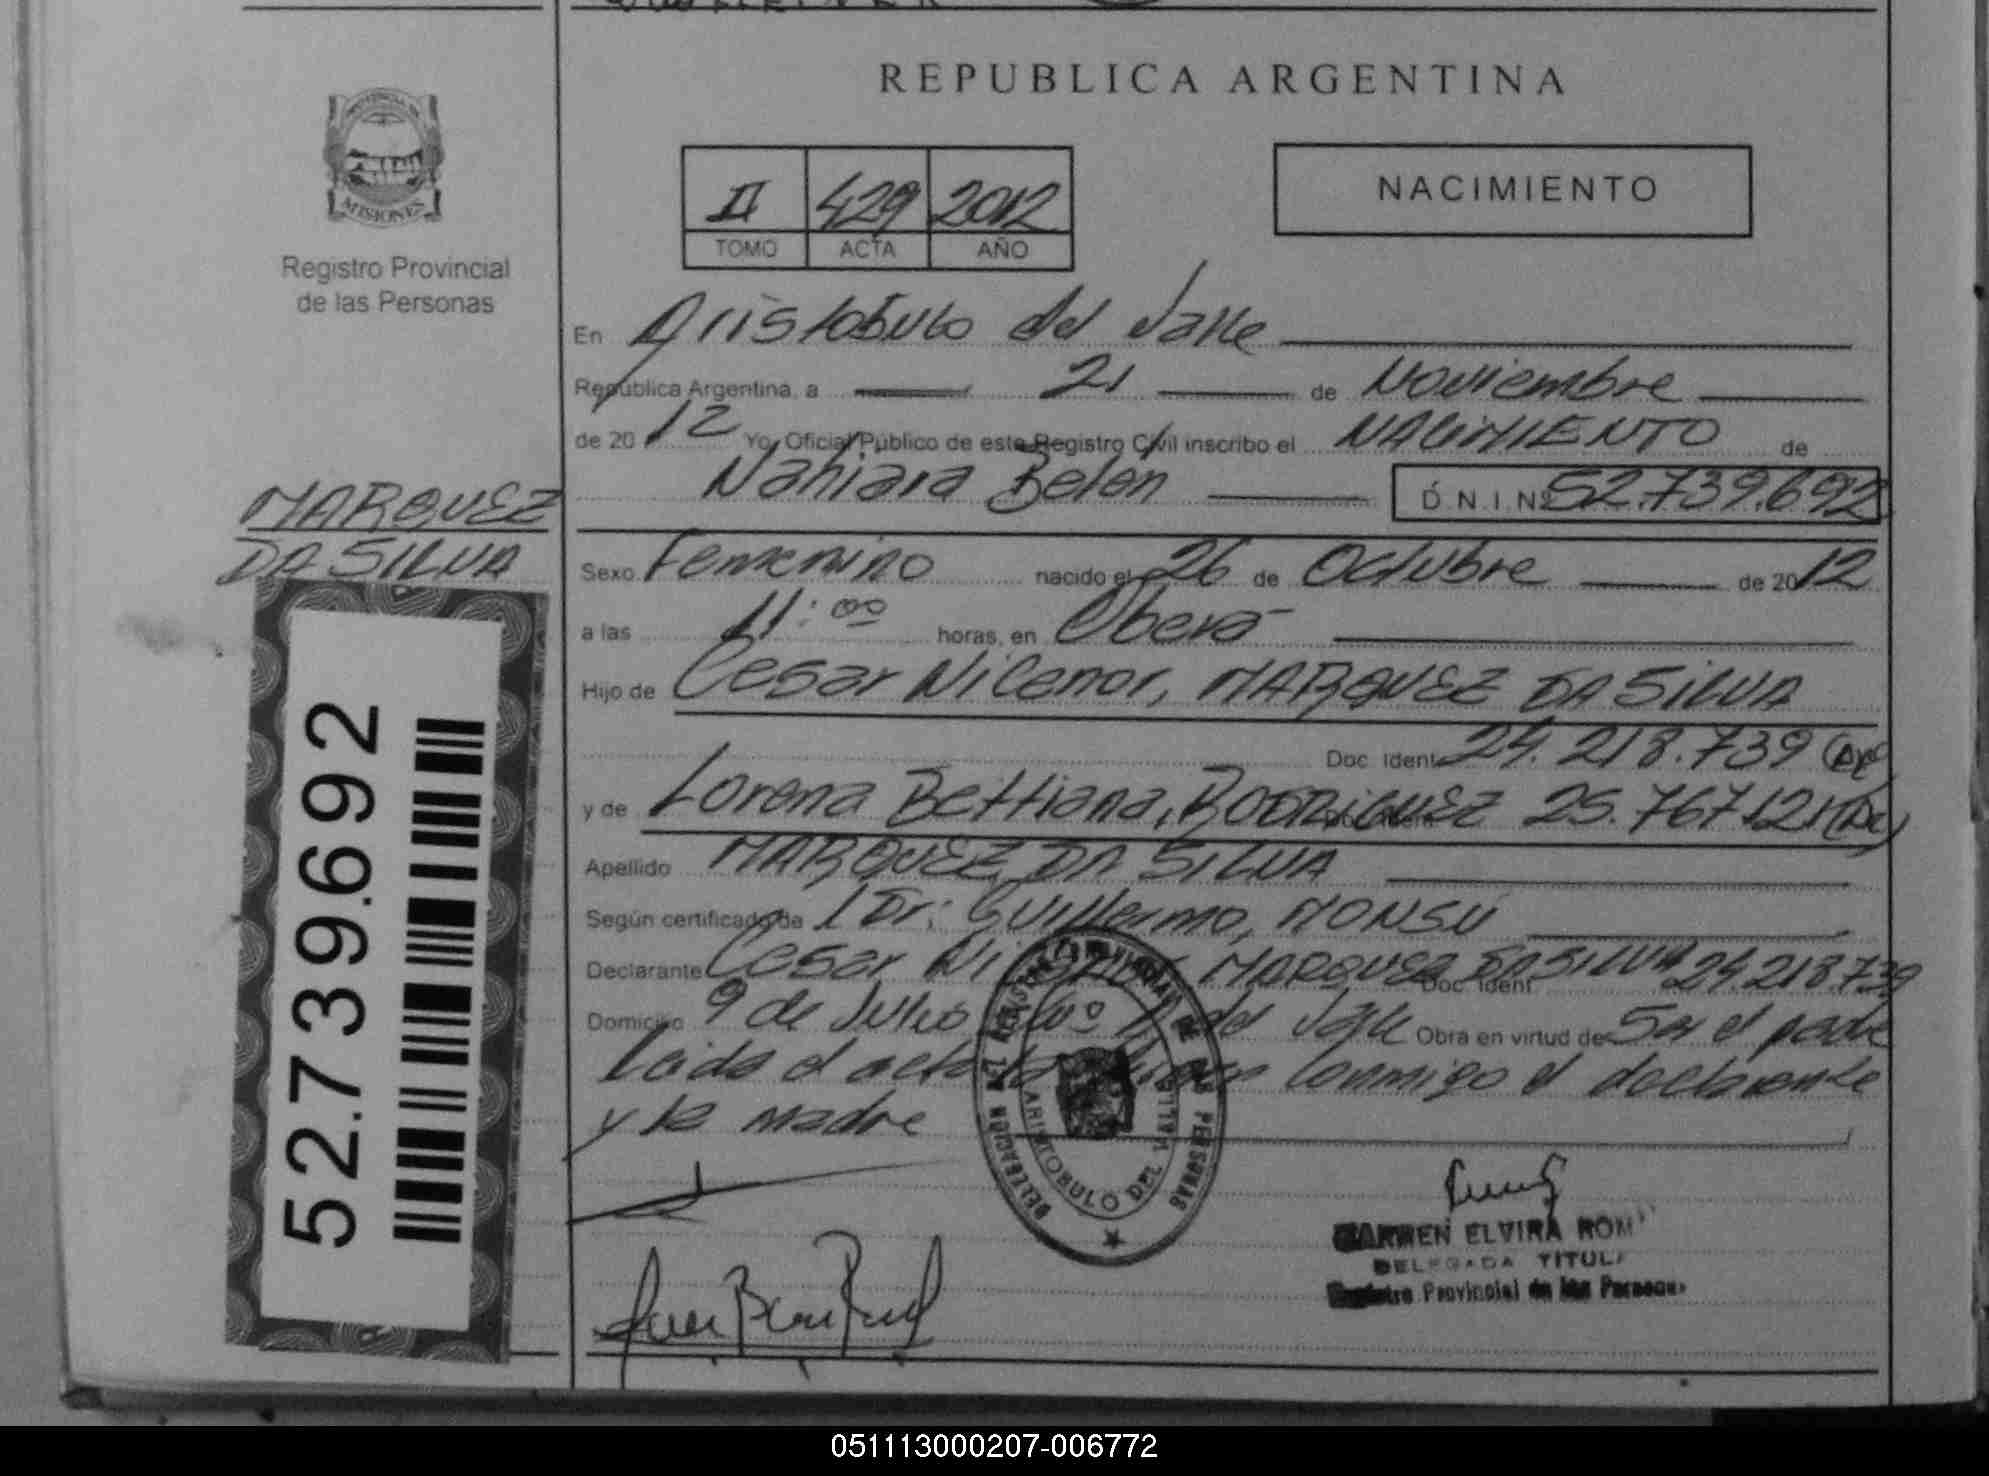 REPUBLICA ARGENTINA
PROVINCIA DE
MISIONES
Registro Provincial
de las Personas
II 429 2012
TOMO ACTA AÑO
NACIMIENTO
En Aristobulo del Valle
República Argentina, a 21 de Noviembre
de 20 12 Yo, Oficial Público de este Registro Civil inscribo el NACIMIENTO de
Nahiara Belen D.N.I. Nº 52.739.692
MARQUEZ
DA SILVA
Sexo Femenino nacido el 26 de Octubre de 20 12
a las 11:00 horas, en Oberá
Hijo de Cesar Nicanor, MARQUEZ DA SILVA
Doc. Ident. 24.218.739 (Ar)
y de Lorena Bettiana, RODRIGUEZ 25.767.121 (Ar)
Apellido MARQUEZ DA SILVA
Según certificado de Dr: Guillermo, MONSU
Declarante Cesar MARQUEZ DA SILVA Doc. Ident. 24.218.739
Domicilio 9 de Julio del Valle Obra en virtud de Ser el padre
Leida el acta la conmigo el declarante
y la madre
DELEGACION DEL REGISTRO PROVINCIAL DE LAS PERSONAS
ARISTOBULO DEL VALLE
CARMEN ELVIRA ROM
DELEGADA TITUL
Registro Provincial de las Personas
52.739.692
051113000207-006772